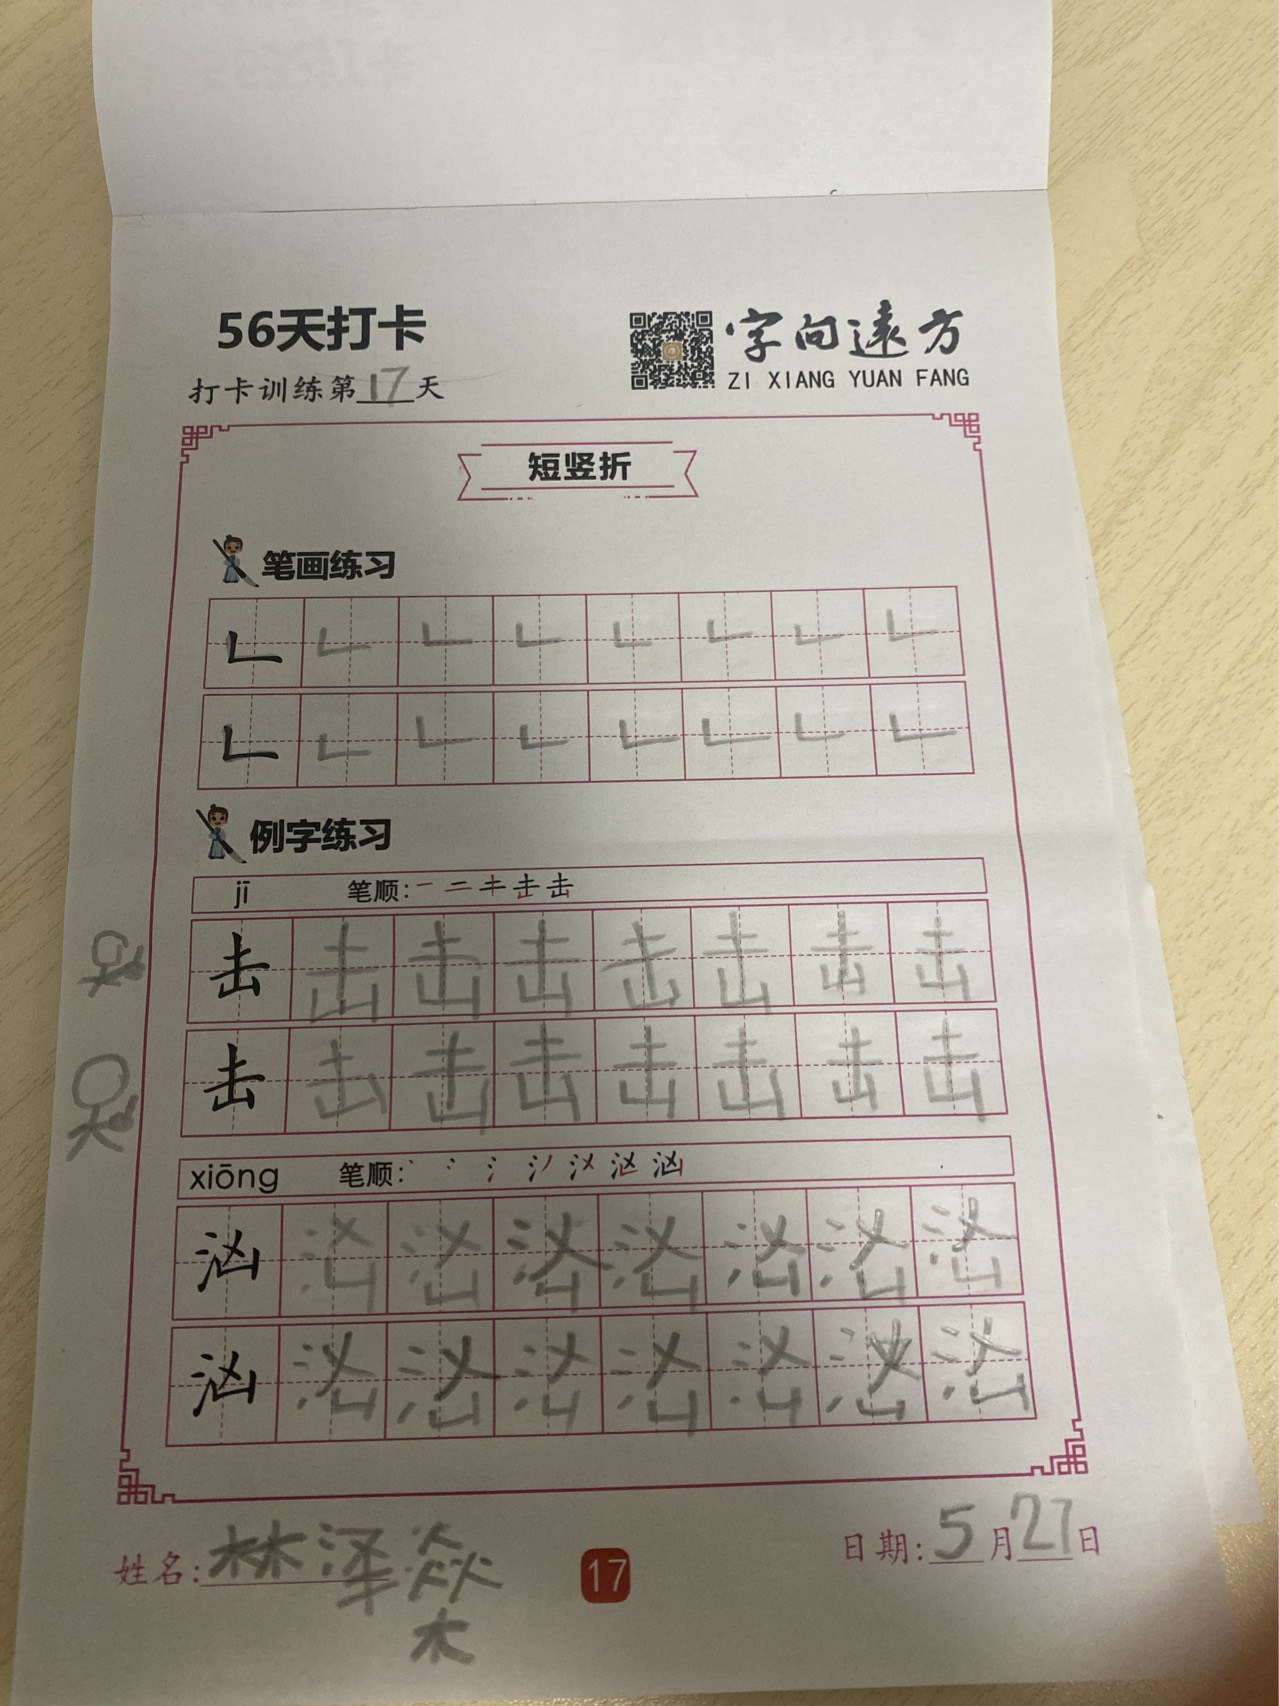 56天打卡
打卡训练第17天
字向远方
ZI XIANG YUAN FANG
短竖折
笔画练习
𠃊 𠃊 𠃊 𠃊 𠃊 𠃊 𠃊 𠃊
𠃊 𠃊 𠃊 𠃊 𠃊 𠃊 𠃊 𠃊
例字练习
jī 笔顺:
击 击 击 击 击 击 击 击
击 击 击 击 击 击 击 击
xiōng 笔顺:
汹 汹 汹 汹 汹 汹 汹 汹
汹 汹 汹 汹 汹 汹 汹 汹
姓名:林泽燊
17
日期:5月27日